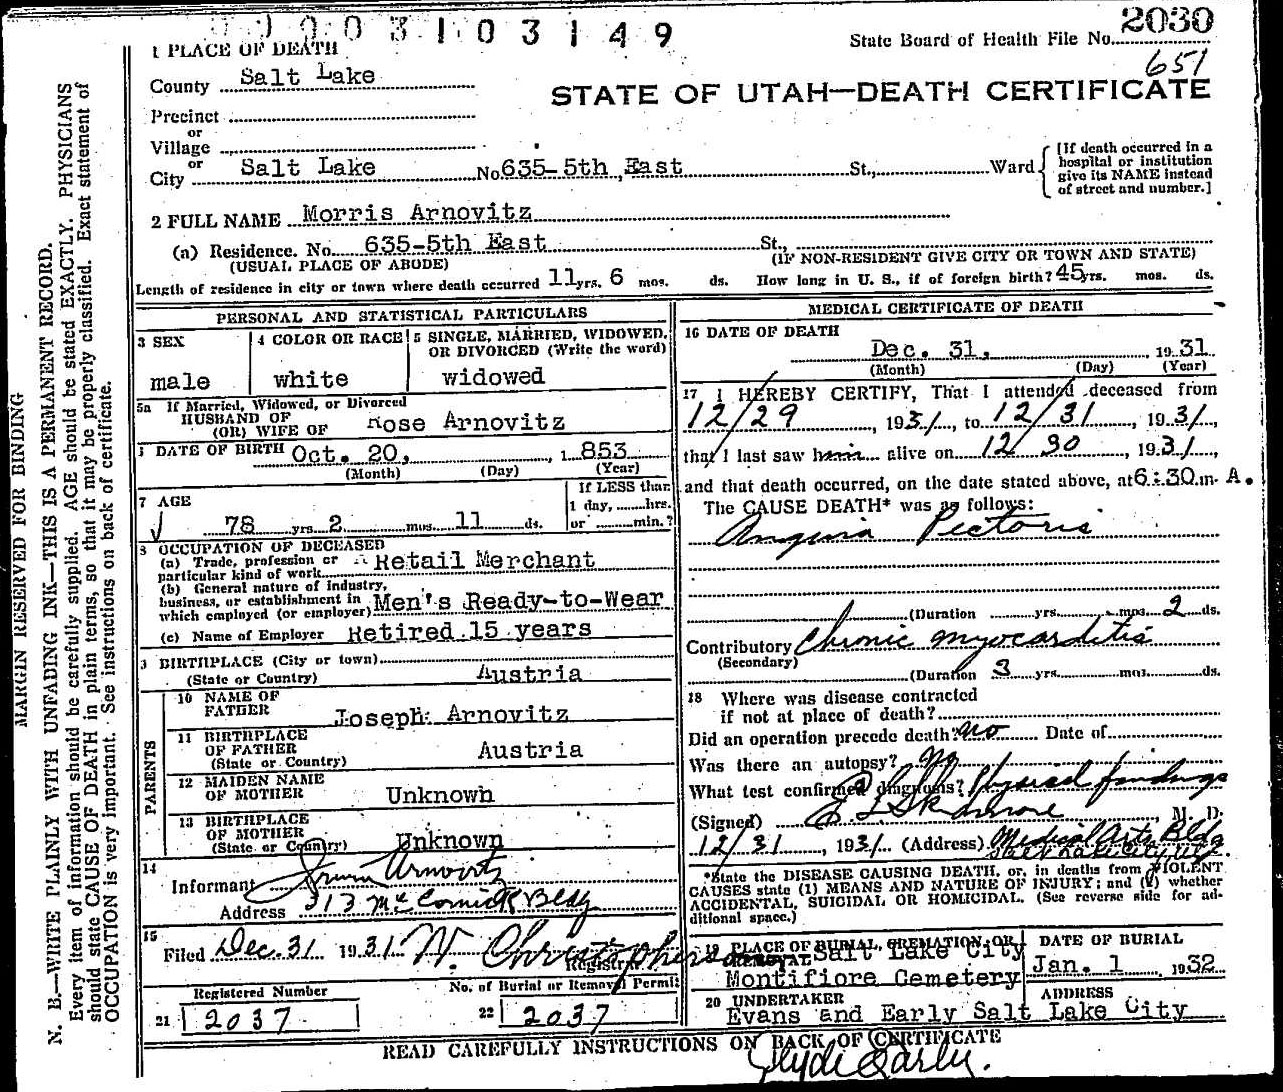 0003103149
2030
State Board of Health File No.
651
1 PLACE OF DEATH
County Salt Lake
STATE OF UTAH—DEATH CERTIFICATE
Precinct
or
Village
or
City Salt Lake No 635-5th East St., Ward
[If death occurred in a hospital or institution give its NAME instead of street and number.]
2 FULL NAME Morris Arnovitz
(a) Residence. No. 635-5th East St.,
(USUAL PLACE OF ABODE) (IF NON-RESIDENT GIVE CITY OR TOWN AND STATE)
Length of residence in city or town where death occurred 11 yrs. 6 mos. ds. How long in U. S., if of foreign birth? 45 yrs. mos. ds.
PERSONAL AND STATISTICAL PARTICULARS
3 SEX
male
4 COLOR OR RACE
white
5 SINGLE, MARRIED, WIDOWED, OR DIVORCED (Write the word)
widowed
5a If Married, Widowed, or Divorced
HUSBAND OF
(OR) WIFE OF Rose Arnovitz
DATE OF BIRTH Oct. 20, 1853
(Month) (Day) (Year)
7 AGE
78 yrs. 2 mos. 11 ds.
If LESS than
1 day, hrs.
or min.?
8 OCCUPATION OF DECEASED
(a) Trade, profession or
particular kind of work Retail Merchant
(b) General nature of industry,
business, or establishment in
which employed (or employer) Men's Ready-to-Wear
(c) Name of Employer Retired 15 years
9 BIRTHPLACE (City or town)
(State or Country) Austria
PARENTS
10 NAME OF
FATHER Joseph Arnovitz
11 BIRTHPLACE
OF FATHER
(State or Country) Austria
12 MAIDEN NAME
OF MOTHER Unknown
13 BIRTHPLACE
OF MOTHER
(State or Country) Unknown
14
Informant Irwin Arnovitz
Address 313 McCornick Bldg
15
Filed Dec. 31 1931 W. Christopherson
Registrar
Registered Number
21 2037
No. of Burial or Removal Permit
22 2037
MEDICAL CERTIFICATE OF DEATH
16 DATE OF DEATH
Dec. 31, 1931
(Month) (Day) (Year)
17 I HEREBY CERTIFY, That I attended deceased from
12/29, 1931, to 12/31, 1931,
that I last saw him alive on 12 30, 1931,
and that death occurred, on the date stated above, at 6:30 m. A.
The CAUSE DEATH* was as follows:
Angina Pectoris
(Duration yrs. mos. 2 ds.
Contributory Chronic myocarditis
(Secondary)
(Duration 3 yrs. mos. ds.
18 Where was disease contracted
if not at place of death?
Did an operation precede death? no Date of
Was there an autopsy? No
What test confirmed diagnosis? Physical findings
(Signed) , M. D.
12/31, 1931. (Address) Medical Arts Bldg
Salt Lake City, Ut.
*State the DISEASE CAUSING DEATH, or, in deaths from VIOLENT
CAUSES state (1) MEANS AND NATURE OF INJURY; and (2) whether
ACCIDENTAL, SUICIDAL OR HOMICIDAL. (See reverse side for ad-
ditional space.)
19 PLACE OF BURIAL, CREMATION, OR
REMOVAL Salt Lake City
Montifiore Cemetery
DATE OF BURIAL
Jan. 1 1932
20 UNDERTAKER
Evans and Early
ADDRESS
Salt Lake City
READ CAREFULLY INSTRUCTIONS ON BACK OF CERTIFICATE
Clyde Early.
MARGIN RESERVED FOR BINDING
N. B.—WRITE PLAINLY WITH UNFADING INK—THIS IS A PERMANENT RECORD.
Every item of information should be carefully supplied. AGE should be stated EXACTLY. PHYSICIANS
should state CAUSE OF DEATH in plain terms, so that it may be properly classified. Exact statement of
OCCUPATION is very important. See instructions on back of certificate.